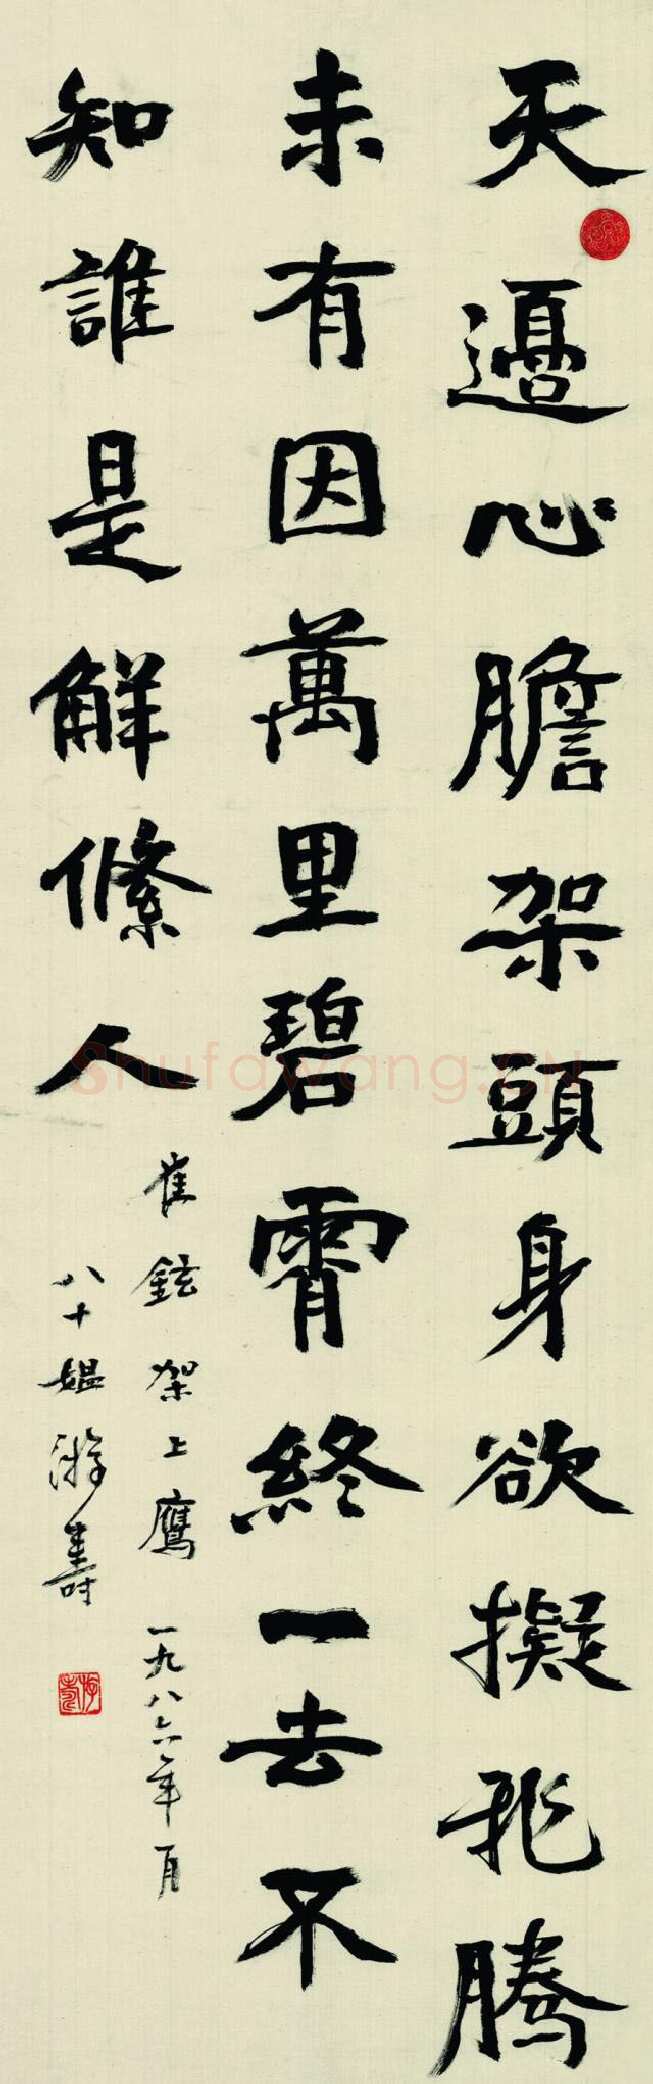 天邊心膽架頭身欲擬飛騰
未有因萬里碧霄終一去不
知誰是解絛人
崔鉉架上鷹 一九八六年一月
八十媼游壽
游壽
shufawang.cn